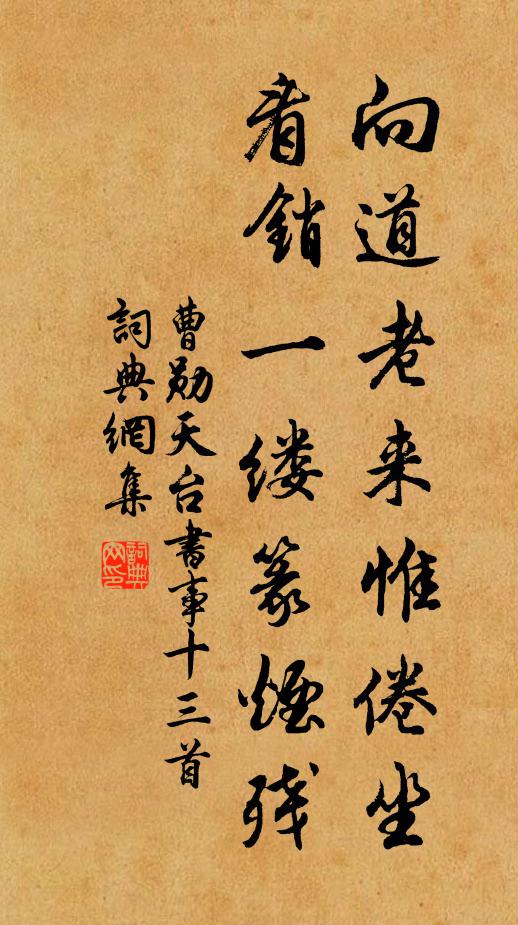 向道老来惟倦坐
看销一缕篆烟残
曹勋天台书事十三首
词典网集
词典网印